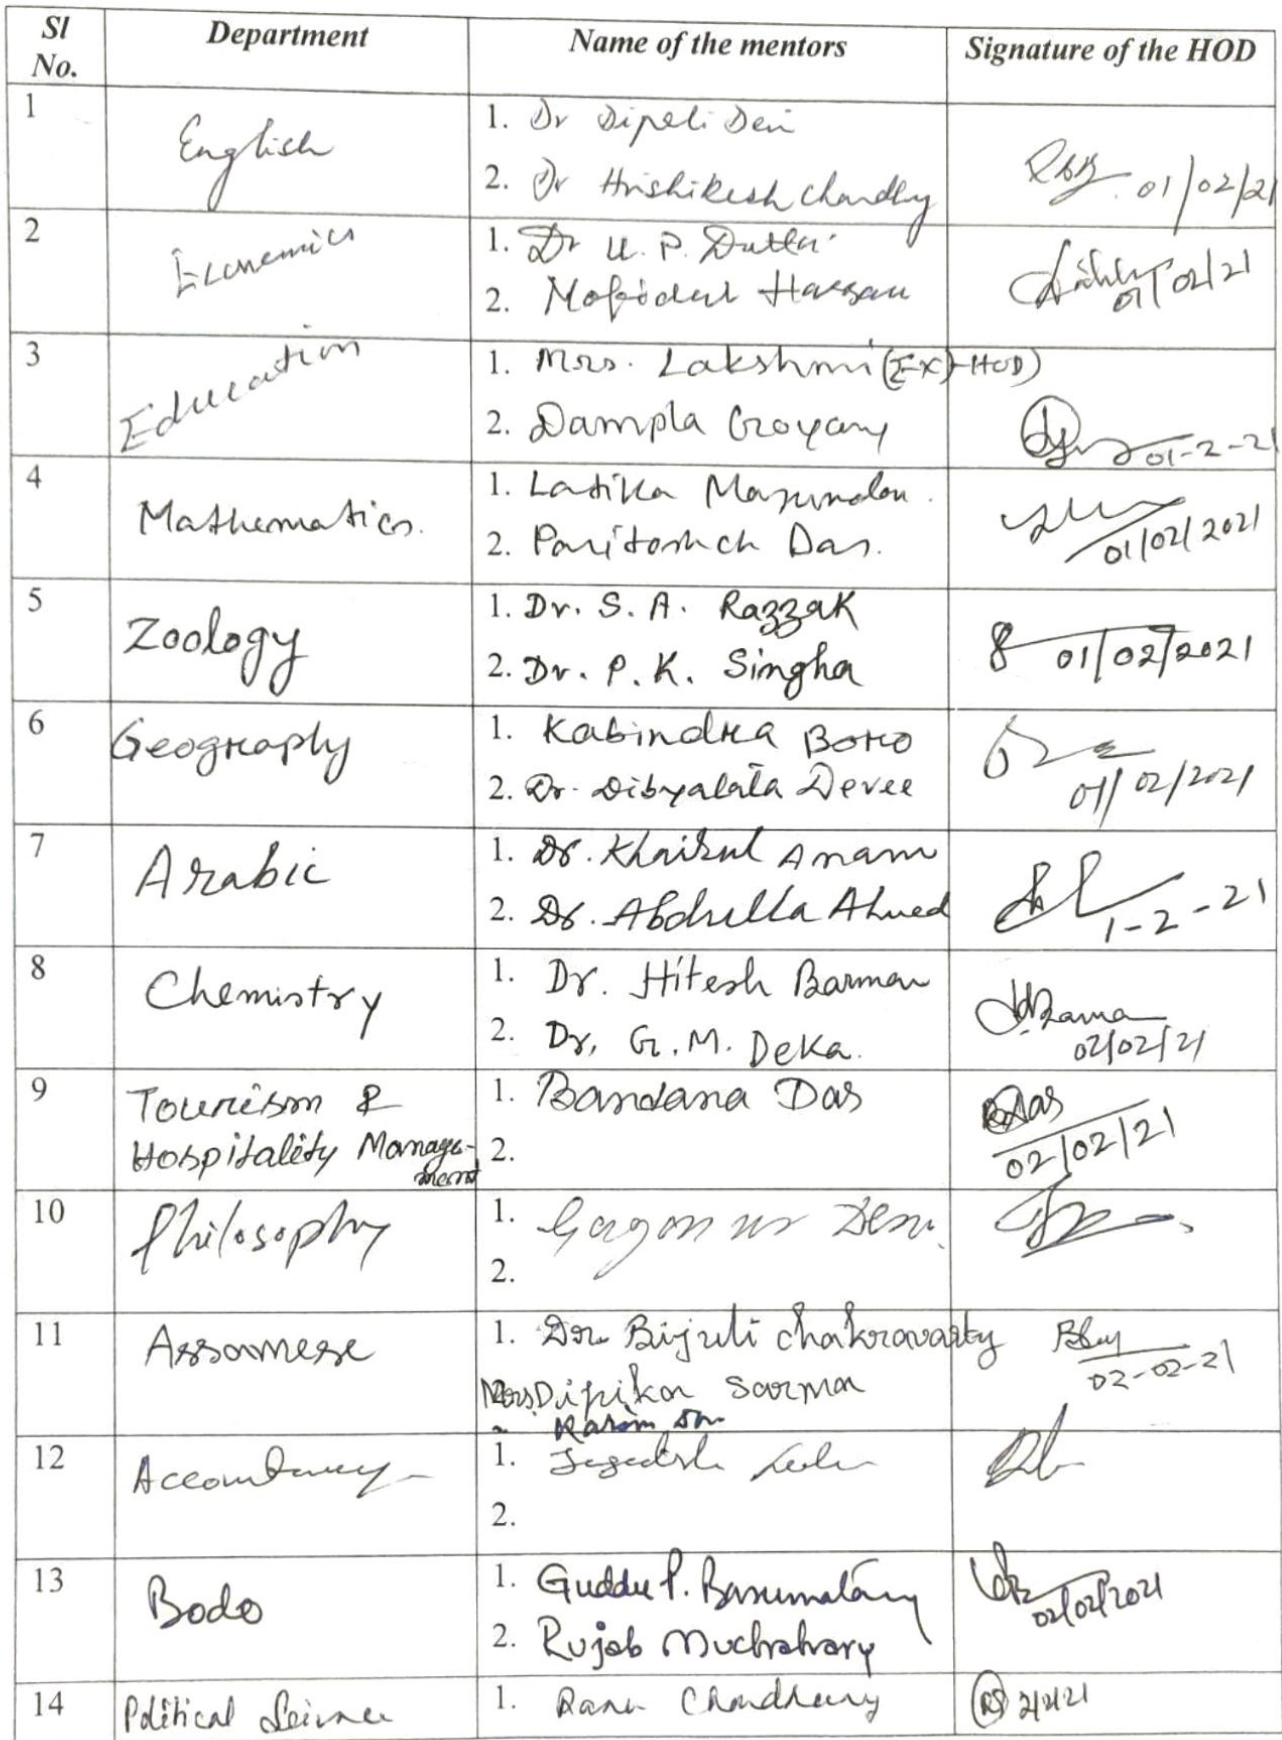 Sl No. Department Name of the mentors Signature of the HOD
1 English 1. Dr Dipali Devi
2. Dr Hrishikesh Choudhry 01/02/21
2 Economics 1. Dr U. P. Dutta
2. Mofidul Hassan 01/02/21
3 Education 1. Mrs. Lakshmi (Ex)-HOD)
2. Dampla Goyary 01-2-21
4 Mathematics. 1. Latika Mazumdar.
2. Paritosh Das. 01/02/2021
5 Zoology 1. Dr. S. A. Razzak
2. Dr. P. K. Singha 01/02/2021
6 Geography 1. Kabindra Boro
2. Dr. Dibyalata Devee 01/02/2021
7 Arabic 1. Dr. Khairul Anam
2. Dr. Abdulla Ahmed 1-2-21
8 Chemistry 1. Dr. Hitesh Barman
2. Dr, G. M. Deka. 02/02/21
9 Tourism & 1. Bandana Das
Hospitality Manage- 2. 02/02/21
ment
10 Philosophy 1.
2.
11 Assamese 1. Dr. Bijuli Chakravarty
Mrs. Dipika Sarma 02-02-21
12 Accountancy 1.
2.
13 Bodo 1. Guddu P. Basumatary 02/02/2021
2. Rujab Muchahary
14 Political Science 1. Ranu Choudhury 2/2/21